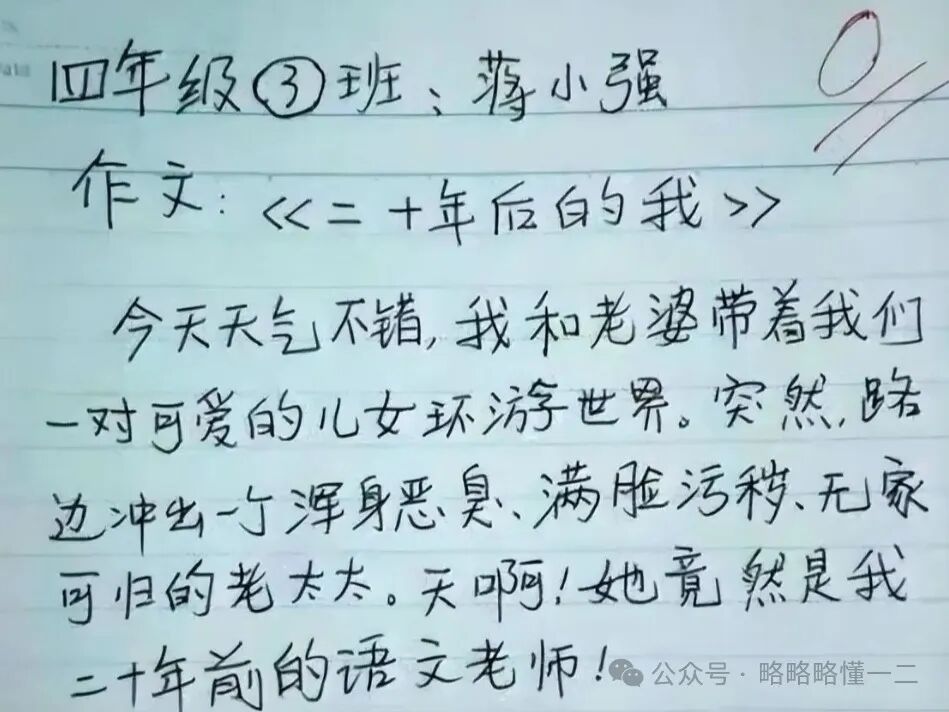 四年级③班：蒋小强
0
作文：《二十年后的我》
今天天气不错，我和老婆带着我们
一对可爱的儿女环游世界。突然，路
边冲出一个浑身恶臭、满脸污秽、无家
可归的老太太。天啊！她竟然是我
二十年前的语文老师！
公众号·略略略懂一二